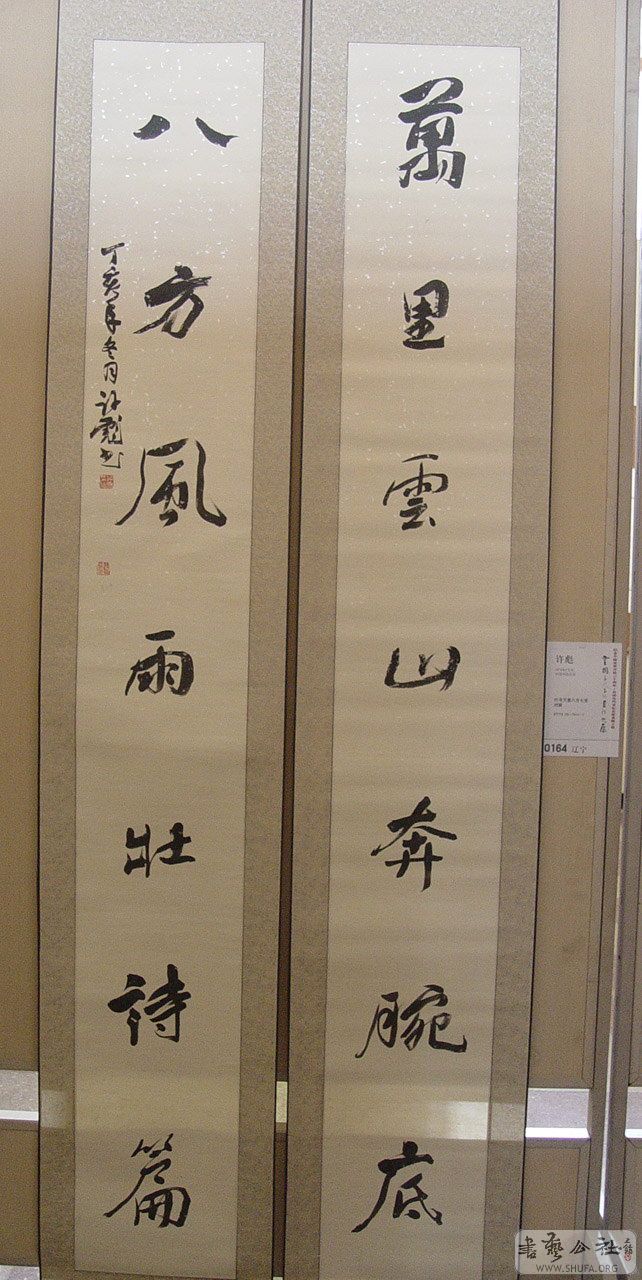 萬里雲山奔腕底
八方風雨壯詩篇
丁亥年冬月許彪书
许彪
0164 辽宁
書藝公社
WWW.SHUFA.ORG